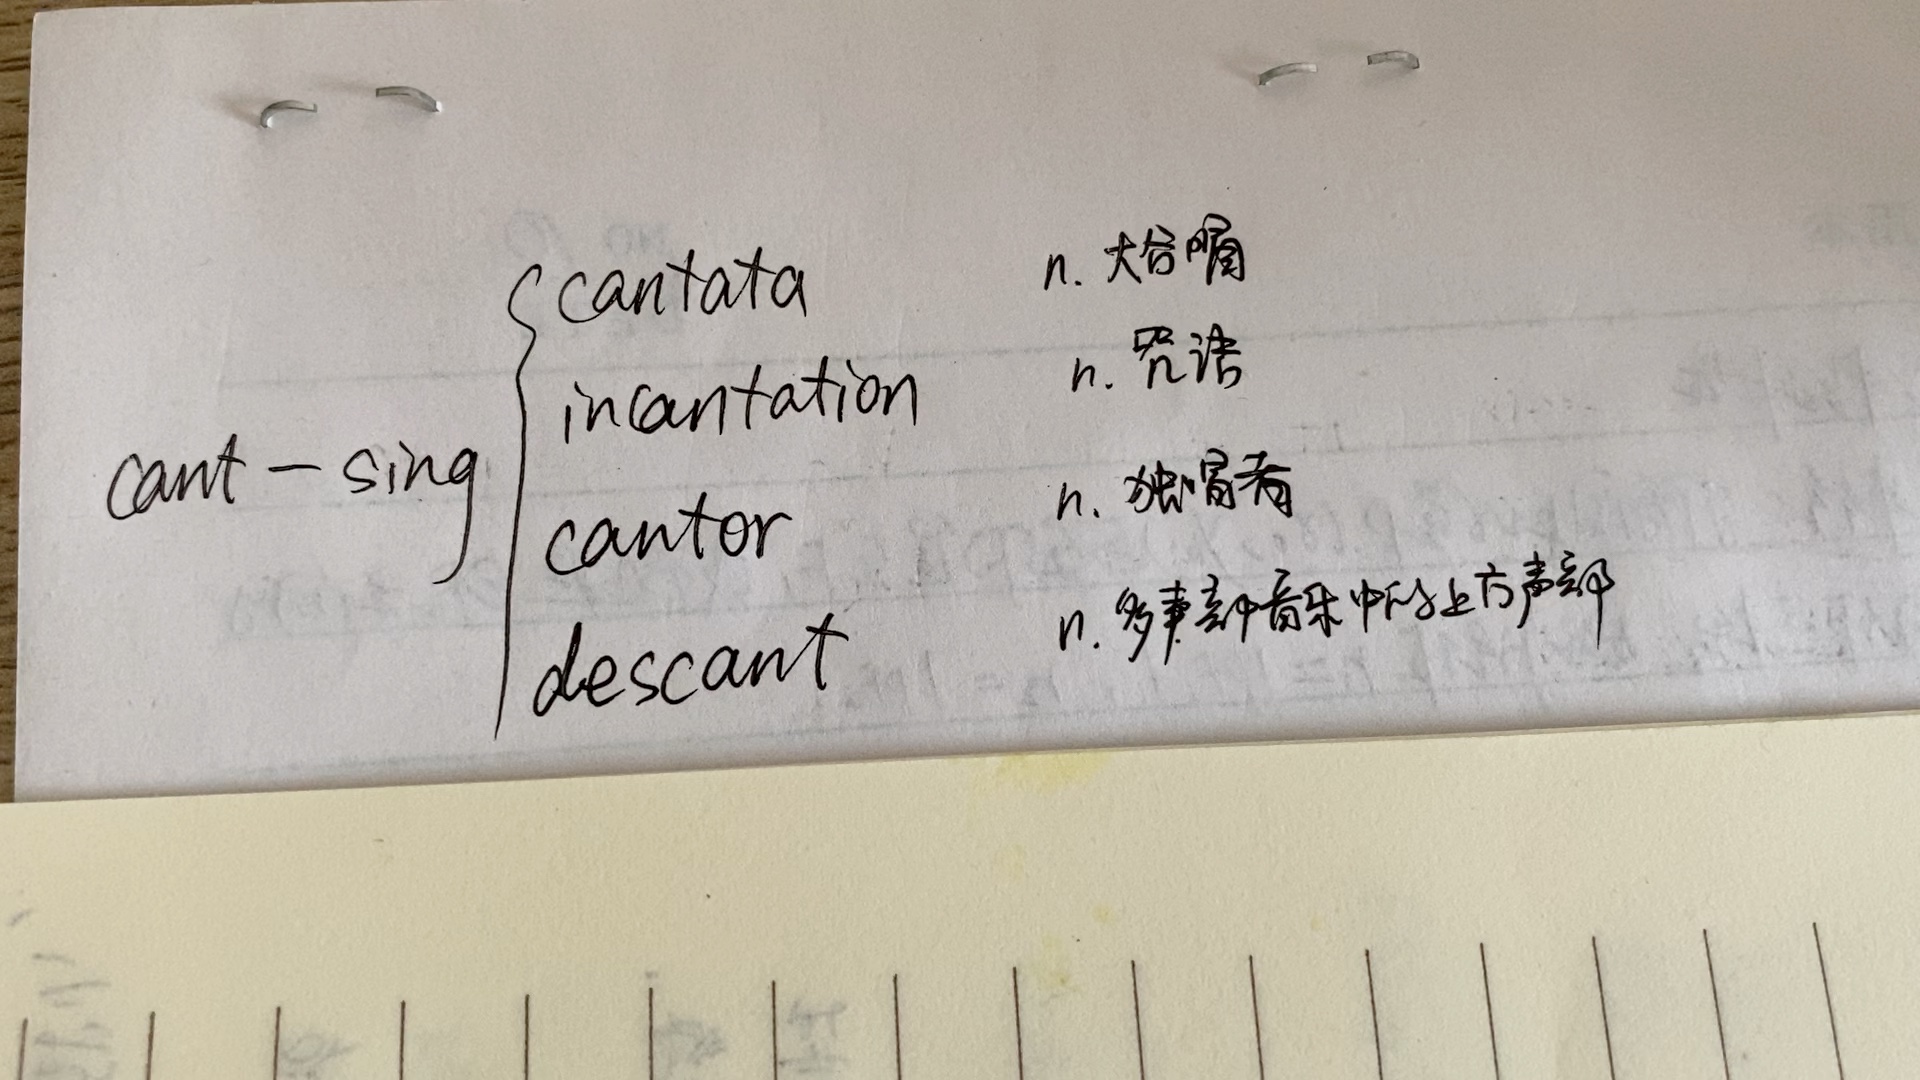 cantata n. 大合唱
incantation n. 咒语
cant - sing
cantor n. 独唱者
descant n. 多声部音乐中的上方声部